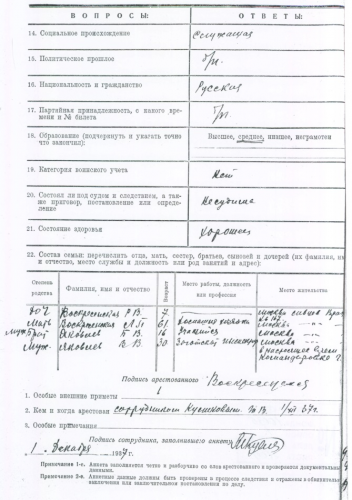 ВОПРОСЫ: ОТВЕТЫ:
14. Социальное происхождение Служащая
15. Политическое прошлое б/п.
16. Национальность и гражданство Русская
17. Партийная принадлежность, с какого времени и № билета б/п.
18. Образование (подчеркнуть и указать точно что закончил): Высшее, среднее, низшее, неграмотен
19. Категория воинского учета Нет
20. Состоял ли под судом и следствием, а также приговор, постановление или определение Несудима
21. Состояние здоровья Хорошее
22. Состав семьи: перечислить отца, мать, сестер, братьев, сыновей и дочерей (их фамилия, имя и отчество, место службы и должность или род занятий и адрес):
Степень родства Фамилия, имя и отчество Возраст Место работы, должность или профессия Место жительства
Дочь Воскресенская Р В 7 Москва Сивцев Враж
Мать Воскресенская Л П 61 Москва
Брат Яковлев Б В 16 Учащийся Москва
Муж Яковлев В В 30 Москва
в настоящее время
командировке
Подпись арестованного Воскресенская
1. Особые внешние приметы
2. Кем и когда арестован сотрудником 1/XII 37г.
3. Особые примечания
Подпись сотрудника, заполнившего анкету
1 Декабря 1937 г.
Примечания 1-е. Анкета заполняется четко и разборчиво со слов арестованного и проверяется документальными данными.
Примечание 2-е. Анкетные данные должны быть проверены в процессе следствия и отражены в обвинительном заключении или заключительном постановлении по делу.